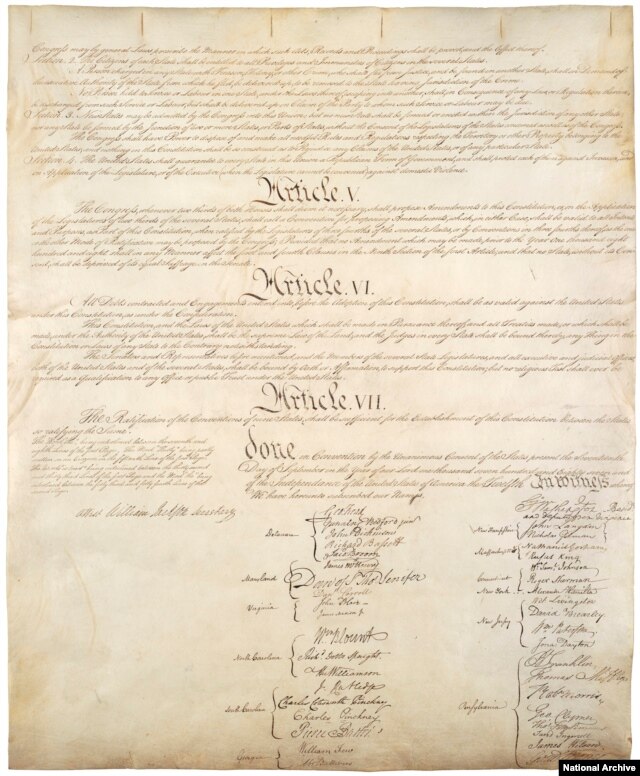 Congress may by general Laws prescribe the Manner in which such Acts, Records and Proceedings shall be proved, and the Effect thereof.
Section. 2. The Citizens of each State shall be entitled to all Privileges and Immunities of Citizens in the several States.
A Person charged in any State with Treason, Felony, or other Crime, who shall flee from Justice, and be found in another State, shall on Demand of
the executive Authority of the State from which he fled, be delivered up, to be removed to the State having Jurisdiction of the Crime.
No Person held to Service or Labour in one State, under the Laws thereof, escaping into another, shall, in Consequence of any Law or Regulation therein,
be discharged from such Service or Labour, but shall be delivered up on Claim of the Party to whom such Service or Labour may be due.
Section. 3. New States may be admitted by the Congress into this Union; but no new State shall be formed or erected within the Jurisdiction of any other State;
nor any State be formed by the Junction of two or more States, or Parts of States, without the Consent of the Legislatures of the States concerned as well as of the Congress.
The Congress shall have Power to dispose of and make all needful Rules and Regulations respecting the Territory or other Property belonging to the
United States; and nothing in this Constitution shall be so construed as to Prejudice any Claims of the United States, or of any particular State.
Section. 4. The United States shall guarantee to every State in this Union a Republican Form of Government, and shall protect each of them against Invasion; and
on Application of the Legislature, or of the Executive (when the Legislature cannot be convened) against domestic Violence.
Article. V.
The Congress, whenever two thirds of both Houses shall deem it necessary, shall propose Amendments to this Constitution, or, on the Application
of the Legislatures of two thirds of the several States, shall call a Convention for proposing Amendments, which, in either Case, shall be valid to all Intents
and Purposes, as Part of this Constitution, when ratified by the Legislatures of three fourths of the several States, or by Conventions in three fourths thereof, as the one
or the other Mode of Ratification may be proposed by the Congress; Provided that no Amendment which may be made prior to the Year One thousand eight
hundred and eight shall in any Manner affect the first and fourth Clauses in the Ninth Section of the first Article; and that no State, without its Consent,
shall be deprived of its equal Suffrage in the Senate.
Article. VI.
All Debts contracted and Engagements entered into, before the Adoption of this Constitution, shall be as valid against the United States
under this Constitution, as under the Confederation.
This Constitution, and the Laws of the United States which shall be made in Pursuance thereof; and all Treaties made, or which shall be
made, under the Authority of the United States, shall be the supreme Law of the Land; and the Judges in every State shall be bound thereby, any Thing in the
Constitution or Laws of any State to the Contrary notwithstanding.
The Senators and Representatives before mentioned, and the Members of the several State Legislatures, and all executive and judicial Officers,
both of the United States and of the several States, shall be bound by Oath or Affirmation, to support this Constitution; but no religious Test shall ever be
required as a Qualification to any Office or public Trust under the United States.
Article. VII.
The Ratification of the Conventions of nine States, shall be sufficient for the Establishment of this Constitution between the States
so ratifying the Same.
done in Convention by the Unanimous Consent of the States present the Seventeenth
Day of September in the Year of our Lord one thousand seven hundred and Eighty seven and
of the Independence of the United States of America the Twelfth In Witness whereof
We have hereunto subscribed our Names,
Attest William Jackson Secretary
Delaware
Geo: Read
Gunning Bedford jun
John Dickinson
Richard Bassett
Jaco: Broom
Maryland
James McHenry
Dan of St Thos Jenifer
Danl Carroll
Virginia
John Blair
North Carolina
Wm Blount
Richd Dobbs Spaight.
Hu Williamson
South Carolina
J. Rutledge
Charles Cotesworth Pinckney
Charles Pinckney
Pierce Butler
Georgia
William Few
Abr Baldwin
Go: Washington
and deputy from Virginia
New Hampshire
John Langdon
Nicholas Gilman
Massachusetts
Nathaniel Gorham
Rufus King
Connecticut
Wm Saml Johnson
Roger Sherman
New York
Alexander Hamilton
New Jersey
Wil: Livingston
David Brearley
Wm Paterson
Jona: Dayton
Pensylvania
B Franklin
Thomas Mifflin
Robt Morris
Geo. Clymer
Jared Ingersoll
James Wilson
National Archive